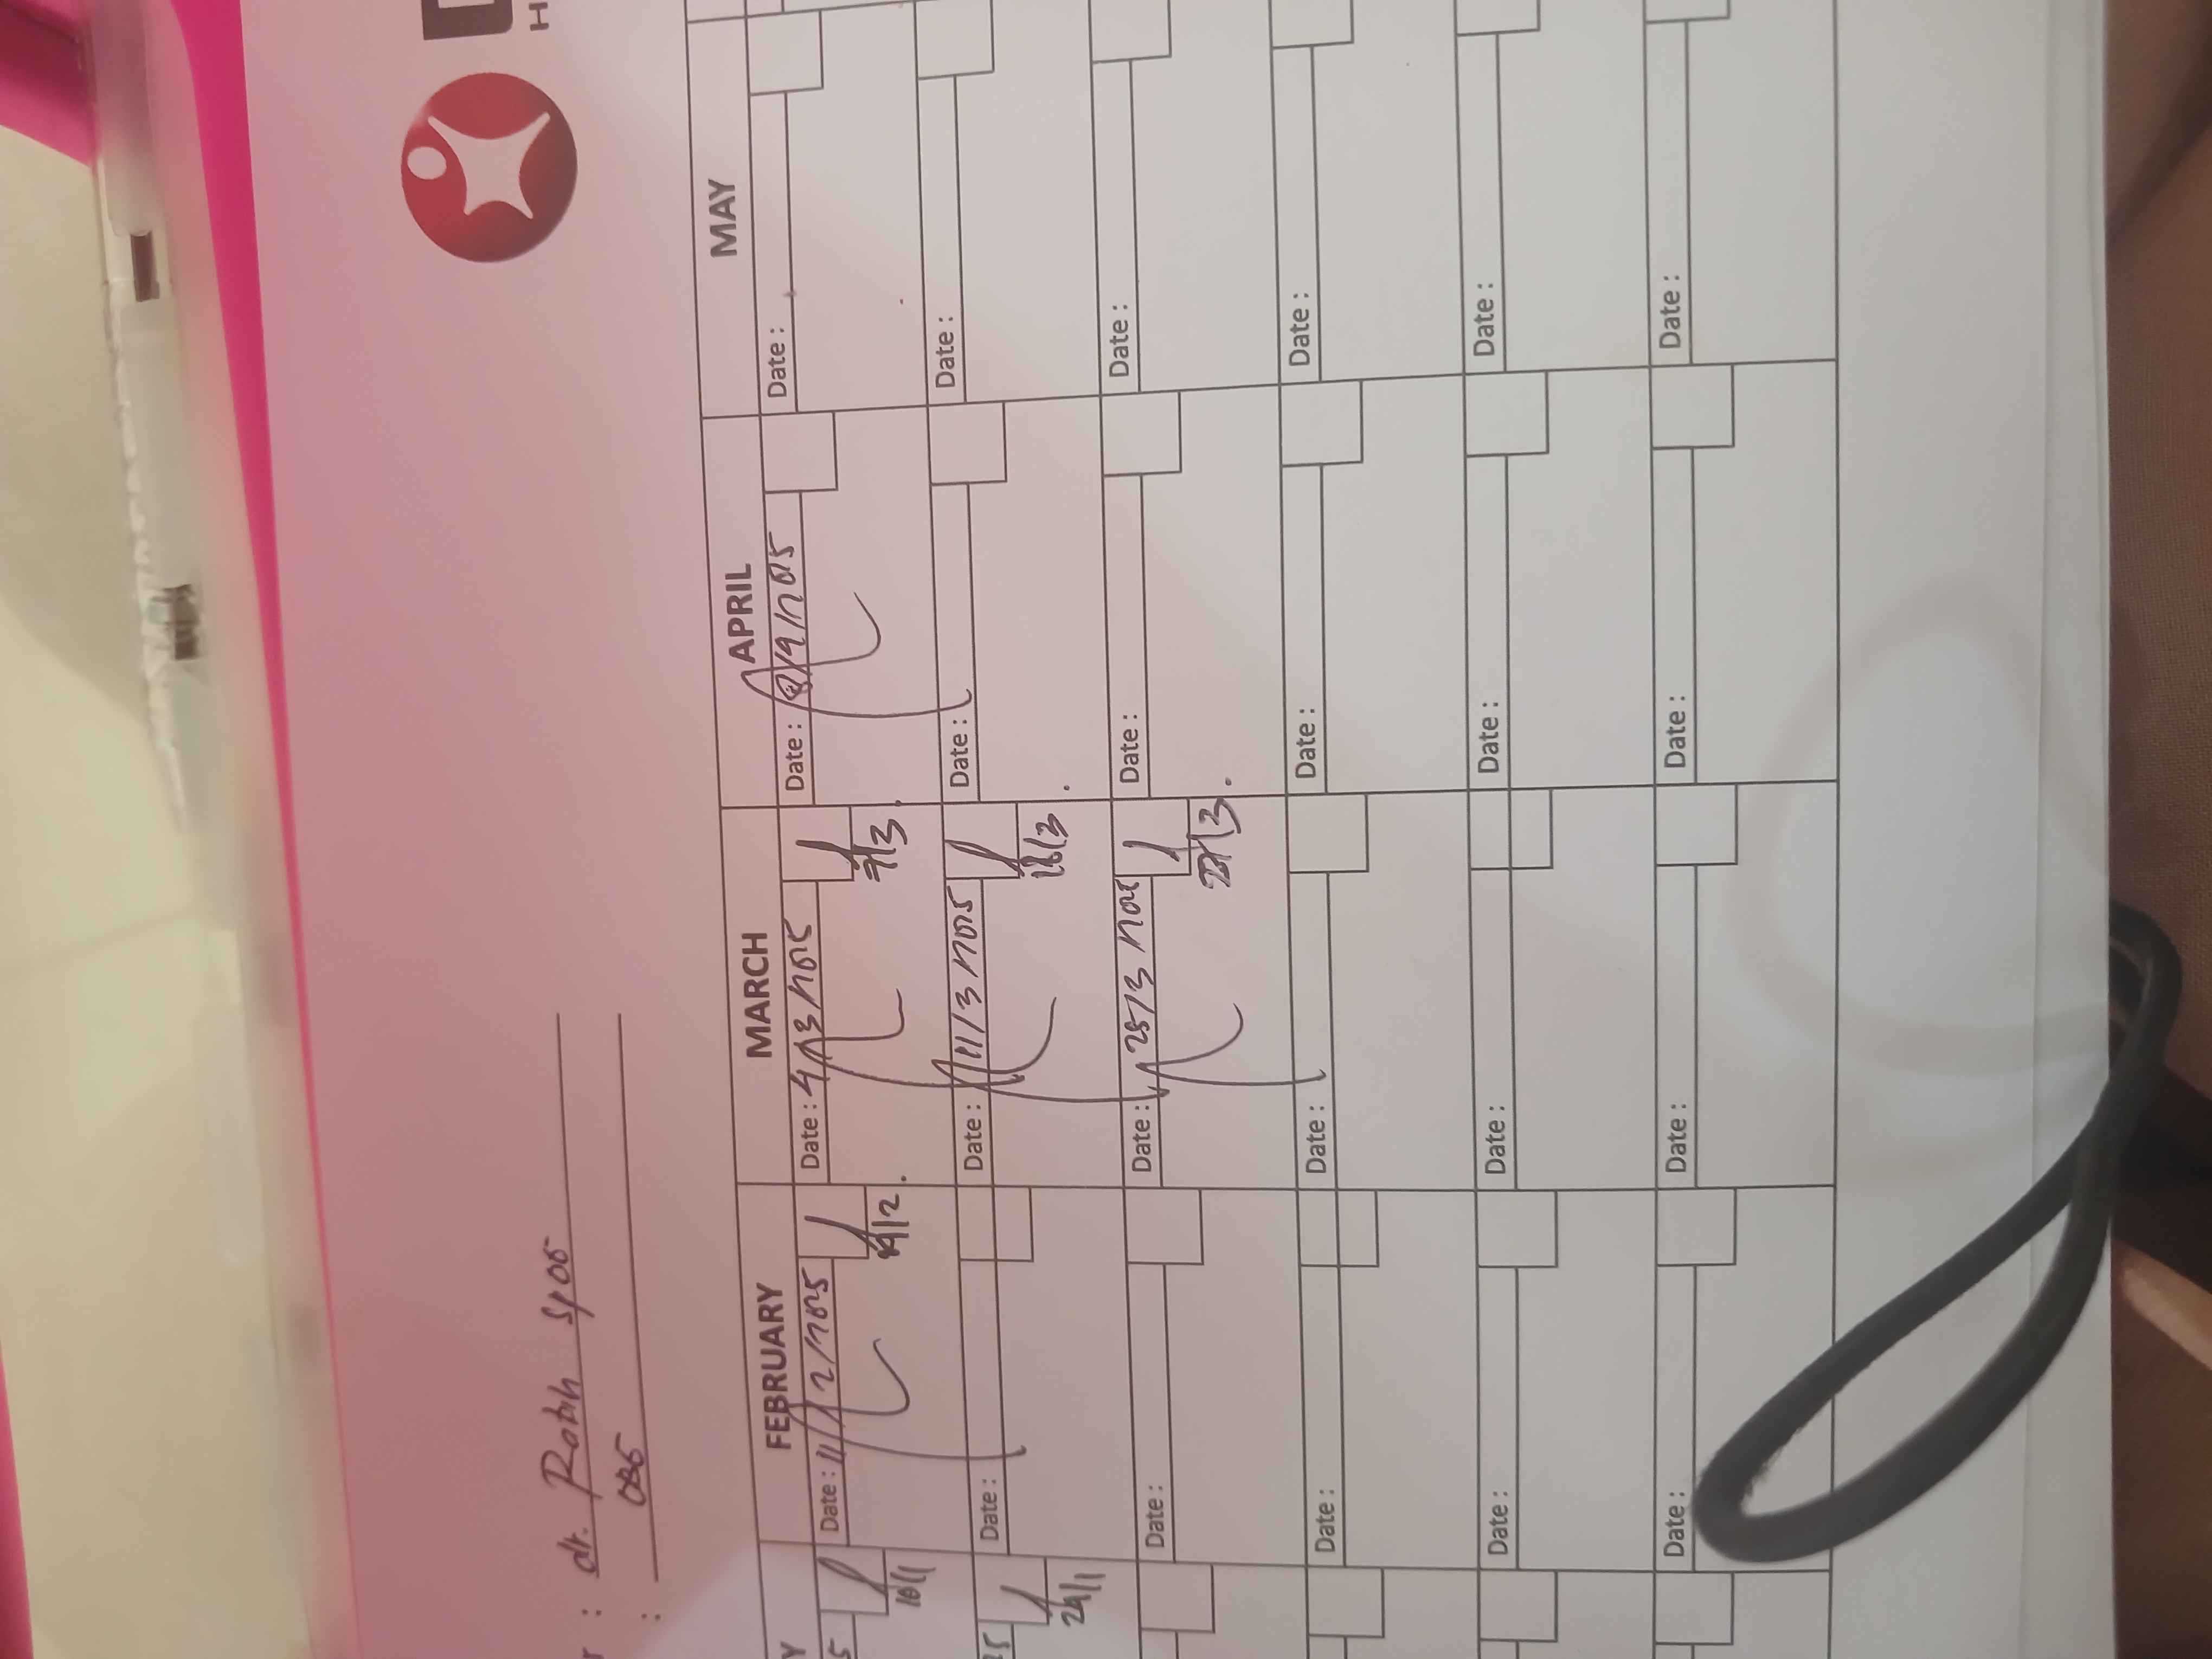 H
: dr. Robih SpOG
: OBS
FEBRUARY MARCH APRIL MAY
Date: 11/2/2025 Date: 4/3/2025 Date: 8/4/2025 Date:
10/1 14/2. 7/3.
Date: Date: 11/3 2025 Date: Date:
24/1 18/3
Date: Date: 25/3 202 Date: Date:
27/3.
Date: Date: Date: Date:
Date: Date: Date: Date:
Date: Date: Date: Date: